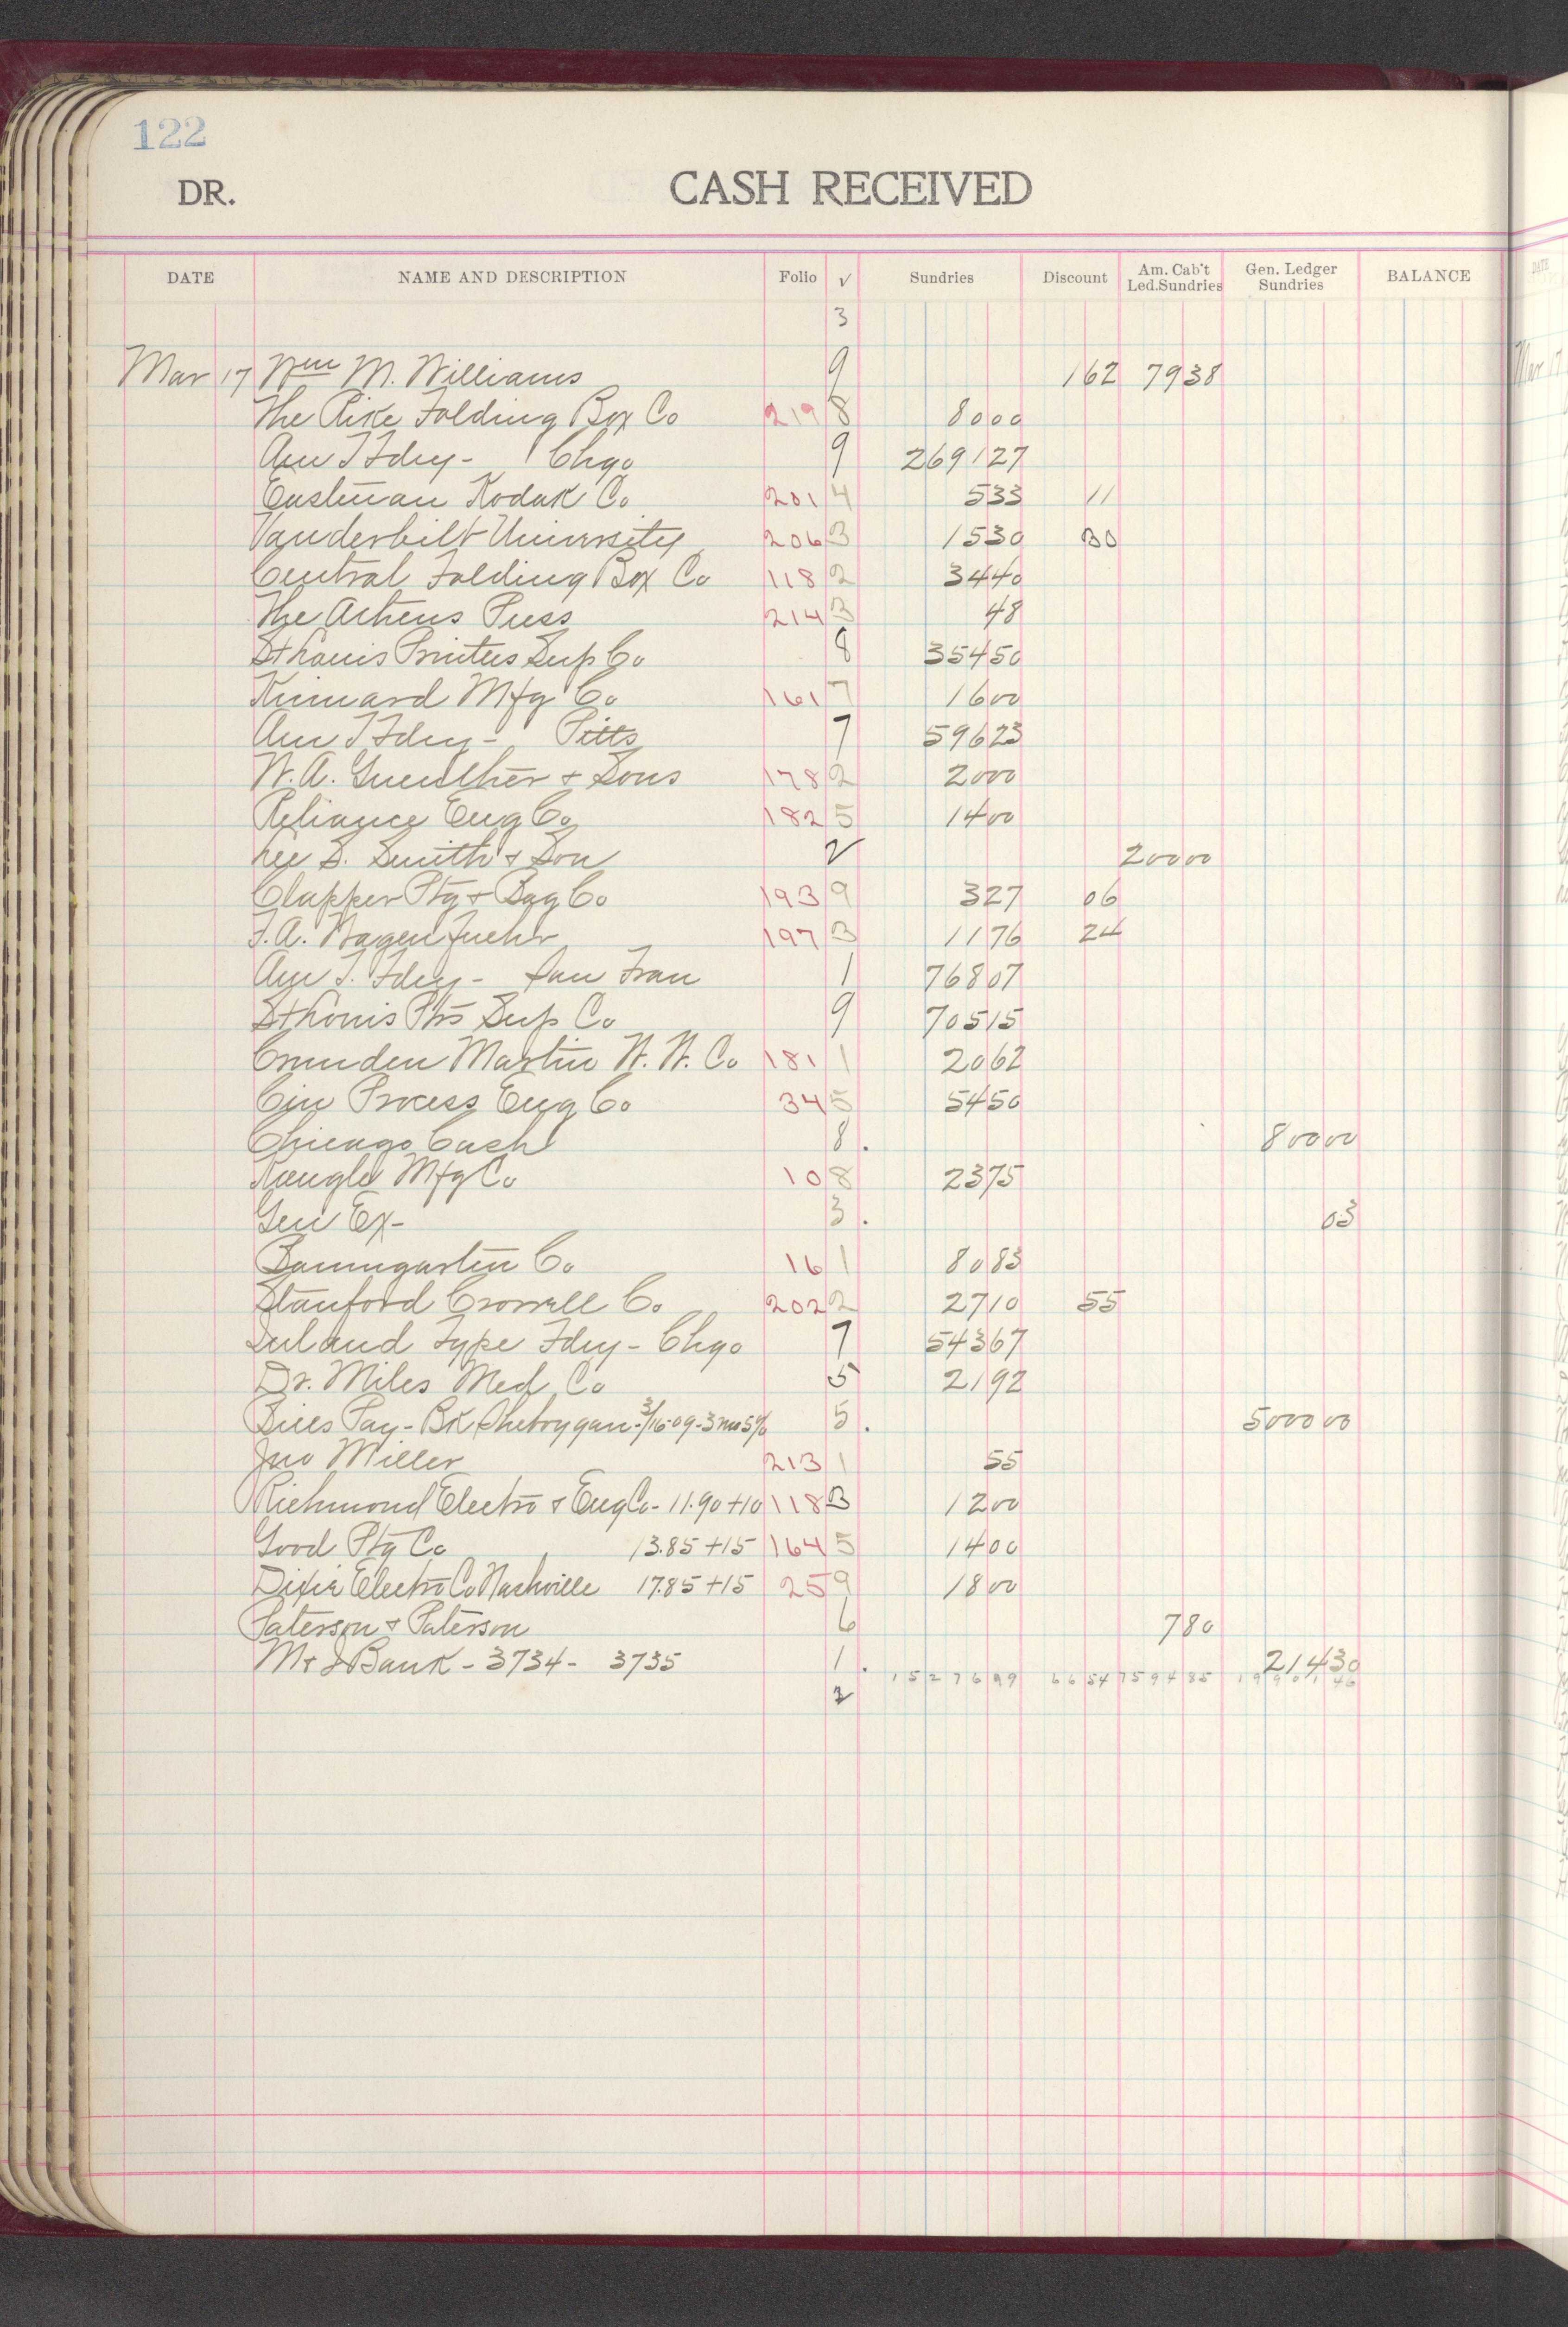 122
DR. CASH RECEIVED
DATE NAME AND DESCRIPTION Folio √ Sundries Discount Am. Cab't Led.Sundries Gen. Ledger Sundries BALANCE
3
Mar 17 Wm M. Williams 9 162 7938
The Pike Folding Box Co 219 8 8000
Am T Fdry - Chgo 9 269127
Eastman Kodak Co 201 4 533 11
Vanderbilt University 206 3 1530 30
Central Folding Box Co 118 2 3440
The Athens Press 214 3 48
St Louis Printers Sup Co 8 35450
Kinnard Mfg Co 161 7 1600
Am T Fdry - Pitts 7 59623
W. A. Guenther & Sons 178 2 2000
Reliance Eng Co 182 5 1400
Lee S. Smith & Son 2 20000
Clapper Ptg & Bag Co 193 9 327 06
F. A. Hagenfuehr 197 3 1176 24
Am T. Fdry - San Fran 1 76807
St Louis Ptrs Sup Co 9 70515
Crunden Martin W. W. Co 181 1 2062
Cin Process Eng Co 34 5 5450
Chicago Cash 8 . 80000
Naugle Mfg Co 10 8 2375
Gen Ex - 3 . 03
Baumgarten Co 16 1 8083
Stanford Crowell Co 202 2 2710 55
Inland Type Fdry - Chgo 7 54367
Dr. Miles Med Co 5 2192
Bills Pay - Bk Sheboygan - 3/16-09 - 3 mo 5% 5 . 500000
Jno Miller 213 1 55
Richmond Electro & Eng Co - 11.90 + 10 118 3 1200
Good Ptg Co 13.85 + 15 164 5 1400
Dixie Electro Co Nashville 17.85 + 15 25 9 1800
Paterson & Paterson 6 780
M & I Bank - 3734 - 3735 1 . 21430
1527699 6654 759485
2